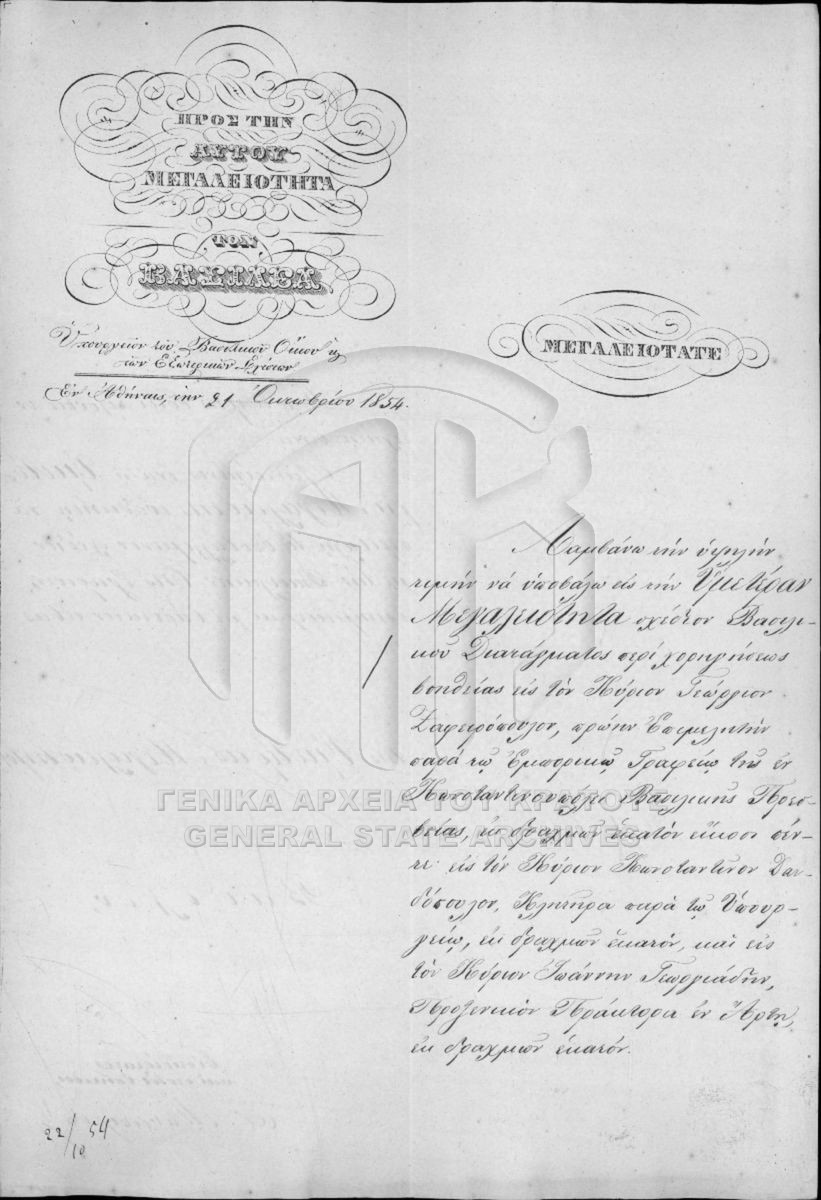 ΠΡΟΣ ΤΗΝ
ΑΥΤΟΥ
ΜΕΓΑΛΕΙΟΤΗΤΑ
ΤΟΝ
ΒΑΣΙΛΕΑ
Ὑπουργεῖον τοῦ Βασιλικοῦ Οἴκου κ
τῶν Ἐξωτερικῶν Σχέσεων
Ἐν Ἀθήναις, τὴν 21 Ὀκτωβρίου 1854.
ΜΕΓΑΛΕΙΟΤΑΤΕ
Λαμβάνω τὴν ὑψηλὴν
τιμὴν νὰ ὑποβάλω εἰς τὴν Ὑμετέραν
Μεγαλειότητα σχέδιον Βασιλι-
κοῦ Διατάγματος περὶ χορηγήσεως
βοηθείας εἰς τὸν Κύριον Γεώργιον
Ζαφειρόπουλον, πρώην Ἐπιμελητὴν
παρὰ τῷ Ἐμπορικῷ Γραφείῳ τῆς ἐν
Κωνσταντινουπόλει Βασιλικῆς Πρεσ-
βείας, ἐκ δραχμῶν ἑκατὸν εἴκοσι πέν-
τε· εἰς τὸν Κύριον Κωνσταντῖνον Δαν-
δόπουλον, Κλητῆρα παρὰ τῷ Ὑπουρ-
γείῳ, ἐκ δραχμῶν ἑκατόν, καὶ εἰς
τὸν Κύριον Ἰωάννην Γεωργιάδην,
Προξενικὸν Πράκτορα ἐν Ἄρτῃ,
ἐκ δραχμῶν ἑκατόν.
ΓΕΝΙΚΑ ΑΡΧΕΙΑ ΤΟΥ ΚΡΑΤΟΥΣ
GENERAL STATE ARCHIVES
22/10 54